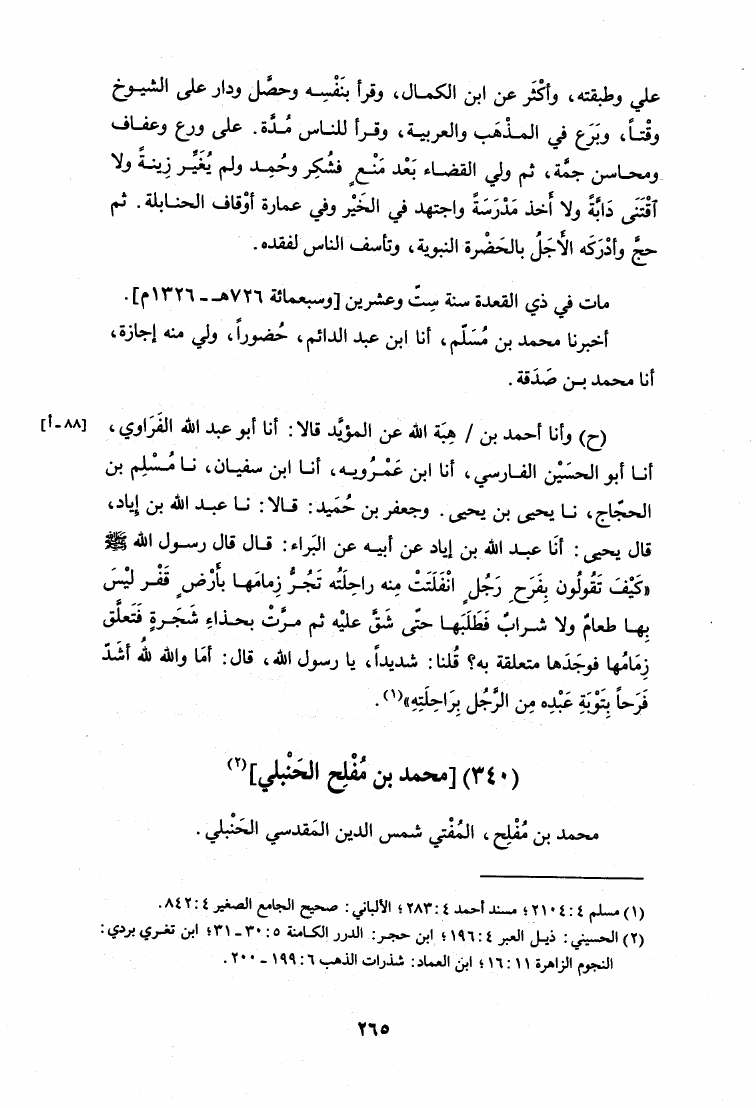 علي وطبقته، وأكْثَر عن ابن الكمال، وقرأ بنَفْسِه وحصَّل ودار على الشيوخ
وقْتاً، وبَرَع في المذْهَب والعربية، وقرأ للناس مُدَّة. على ورع وعفاف
ومحاسن جمَّة، ثم ولي القضاء بَعْد مَنْعٍ فشُكِر وحُمِد ولم يُغَيِّر زِينةً ولا
آقْتَنَى دَابَّةً ولا أَخذ مَدْرَسَةً واجتهد في الخَيْر وفي عمارة أوْقاف الحنابلة. ثم
حجَّ وأدْرَكَه الأجَلُ بالحَضْرة النبوية، وتأسف الناس لفقده.
مات في ذي القعدة سنة سِتّ وعشرين [وسبعمائة ٧٢٦هـ - ١٣٢٦م].
أخبرنا محمد بن مُسَلّم، أنا ابن عبد الدائم، حُضوراً، ولي منه إجازة،
أنا محمد بن صَدَقة.
(ح) وأنا أحمد بن / هِبَة الله عن المؤيَّد قالا: أنا أبو عبد الله الفَرَاوي، [٨٨-أ]
أنا أبو الحسَيْن الفارسي، أنا ابن عَمْرُويه، أنا ابن سفيان، نا مُسْلِم بن
الحجّاج، نا يحيى بن يحيى. وجعفر بن حُمَيد: قالا: نا عبد الله بن إياد،
قال يحيى: أنَا عبد الله بن إياد عن أبيه عن البَراء: قال قال رسول الله ﷺ
«كَيْفَ تَقُولُون بِفَرحِ رَجُلٍ انْفَلَتَتْ منه راحِلَتُه تَجُرُّ زِمامَها بأرْضٍ قَفْر ليْسَ
بها طعامٌ ولا شرابٌ فَطَلَبَها حتّى شَقَّ عليْه ثم مرَّتْ بحذاءِ شَجَرةٍ فَتَعلَّق
زِمَامُها فوجَدَها متعلقة به؟ قُلنا: شديداً، يا رسول الله، قال: أمَا والله للهُ أشَدّ
فَرَحاً بِتَوْبَةِ عَبْدِه مِن الرَّجُلِ بِرَاحِلَتِهِ»(١).
(٣٤٠) [محمد بن مُفْلِح الحَنْبلي](٢)
محمد بن مُفْلِح، المُفْتي شمس الدين المَقدسي الحَنْبلي.
(١) مسلم ٤:٢١٠٤؛ مسند أحمد ٤:٢٨٣؛ الألباني: صحيح الجامع الصغير ٤:٨٤٢.
(٢) الحسيني: ذيل العبر ٤:١٩٦؛ ابن حجر: الدرر الكامنة ٥:٣٠-٣١؛ ابن تغري بردي:
النجوم الزاهرة ١١:١٦؛ ابن العماد: شذرات الذهب ٦:١٩٩-٢٠٠.
٢٦٥